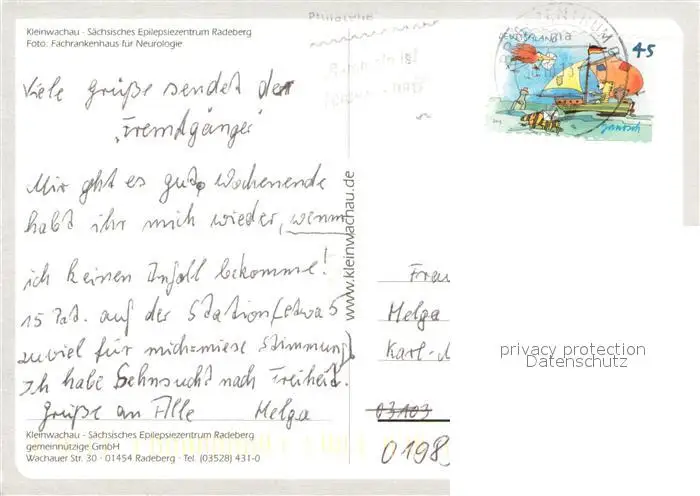 Kleinwachau - Sächsisches Epilepsiezentrum Radeberg
Foto: Fachkrankenhaus für Neurologie
Viele Grüße sendet der
"Fremdgänger"
Mir geht es gut, Wochenende
habt ihr mich wieder, wenn
ich keinen Anfall bekomme!
15 Pat. auf der Station (etwas
zuviel für mich=miese Stimmung)
Ich habe Sehnsucht nach Freiheit.
Grüße an Alle Helga
Kleinwachau - Sächsisches Epilepsiezentrum Radeberg
gemeinnützige GmbH
Wachauer Str. 30 · 01454 Radeberg · Tel. (03528) 431-0
www.kleinwachau.de
Philatelie
BRIEFZENTRUM
DEUTSCHLAND
45
janosch
Frau
Helga
Karl-
03103
0198
privacy protection
Datenschutz